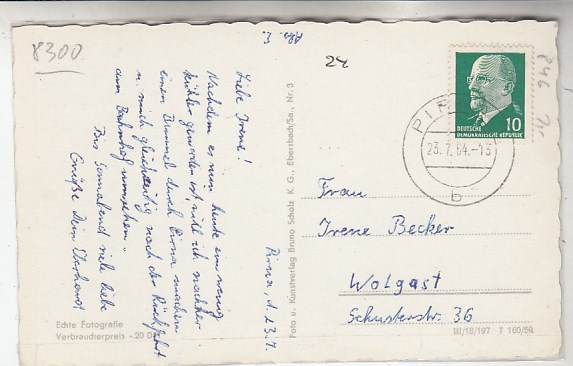 8300
Abs. E.
24
846
Pirna, d. 23.7.
Liebe Irene!
Nachdem es nun heute ein wenig
kühler geworden ist, will ich nachher
einen Bummel durch Pirna machen
u. mich gleichzeitig nach der Rückfahrt
am Bahnhof umsehen.
Bis Sonnabend viele liebe
Grüße Dein Eberhard
Echte Fotografie
Verbraucherpreis -.20 DM
Foto u. Künstverlag Bruno Scholz K. G., Ebersbach/Sa., Nr. 3
DEUTSCHE
DEMOKRATISCHE REPUBLIK
10
PIR
23.7.64.-13
b
Frau
Irene Becker
Wolgast
Schusterstr. 36
III/18/197 T 160/59